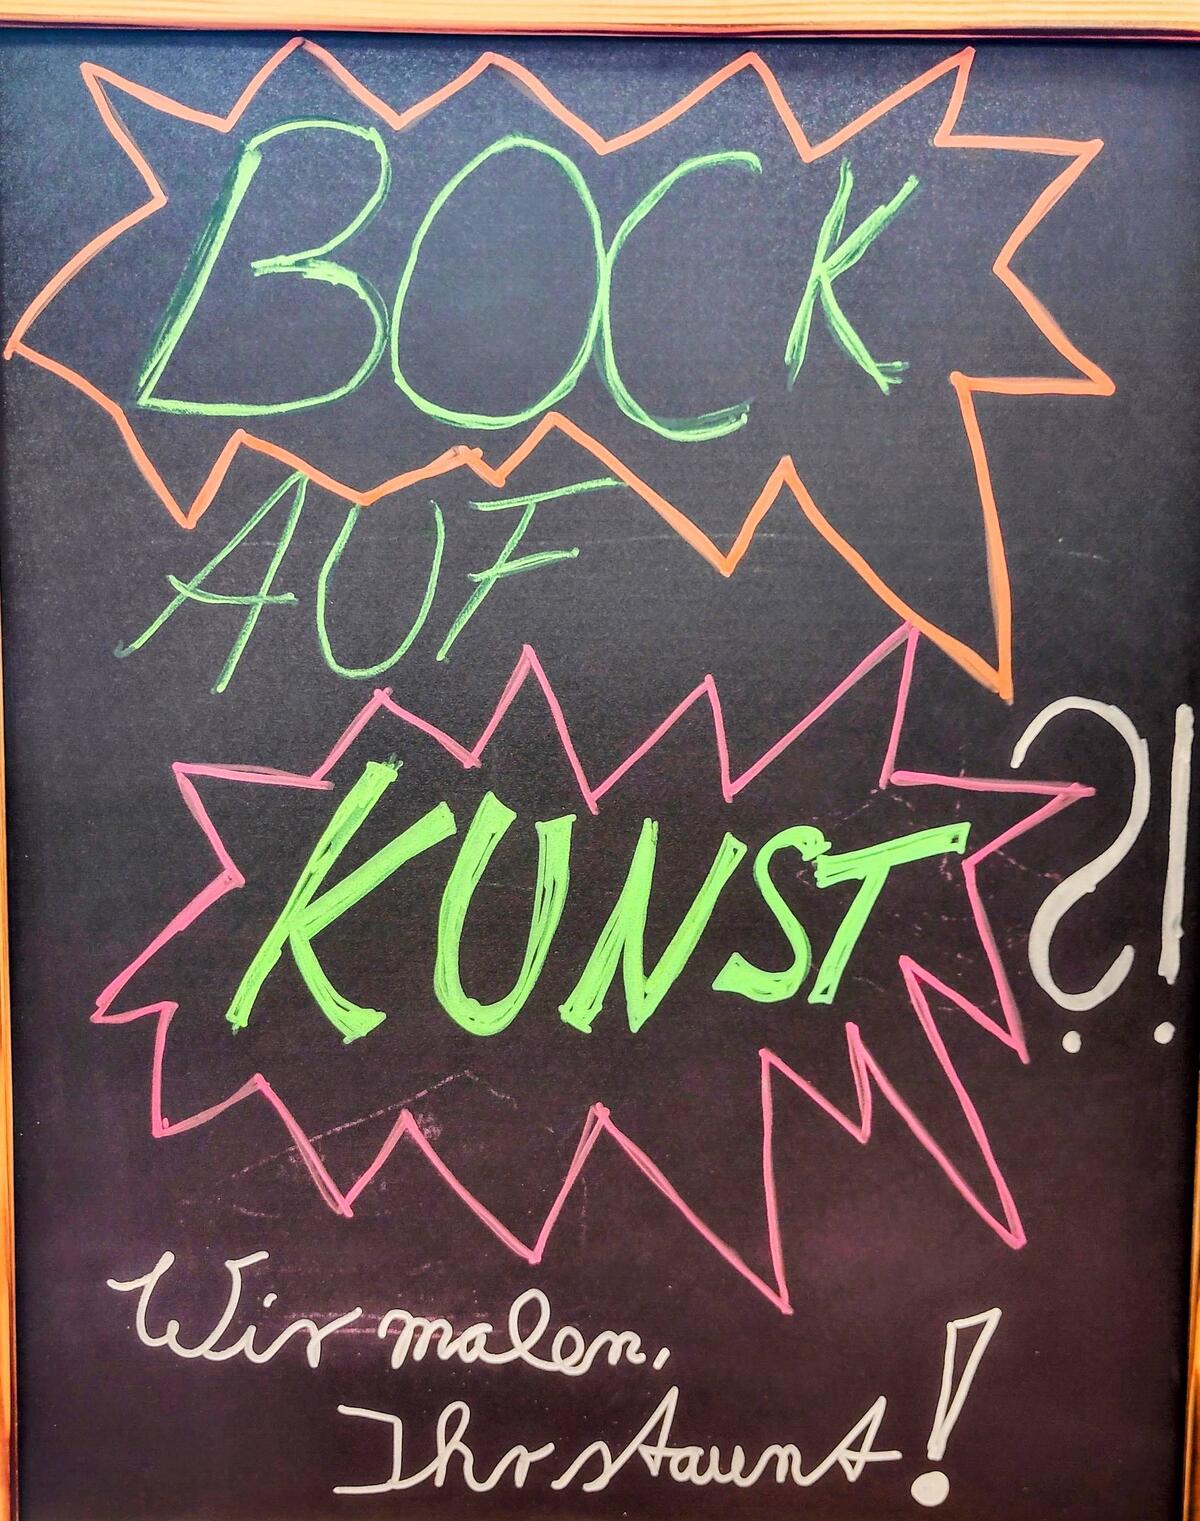 BOCK
AUF
KUNST ?!
Wir malen,
Ihr staunt!